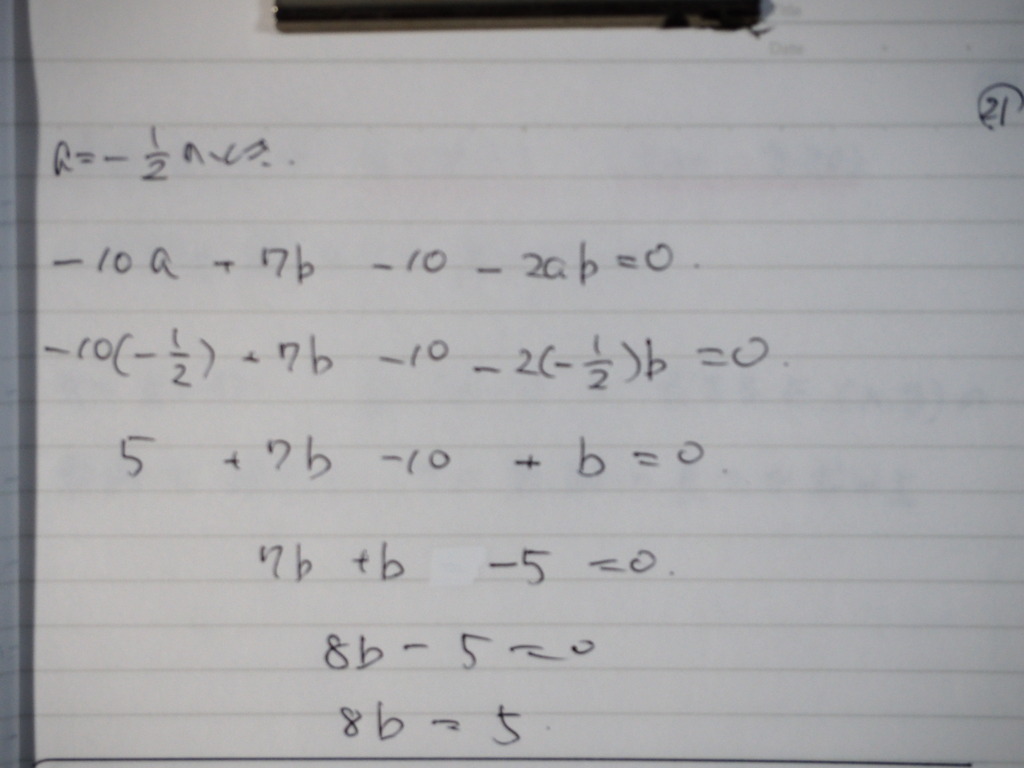 21
a = - 1/2 のとき.
-10a + 7b - 10 - 2ab = 0.
-10(-1/2) + 7b - 10 - 2(-1/2)b = 0.
5 + 7b - 10 + b = 0.
7b + b - 5 = 0.
8b - 5 = 0
8b = 5.